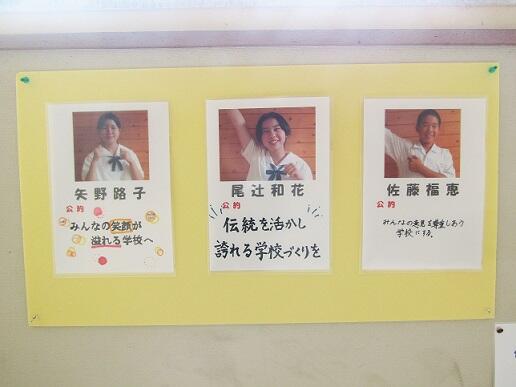 矢野路子
公約
みんなの笑顔が
溢れる学校へ
尾辻和花
公約
伝統を活かし
誇れる学校づくりを
佐藤福恵
公約
みんなの意見を尊重しあう
学校にする。